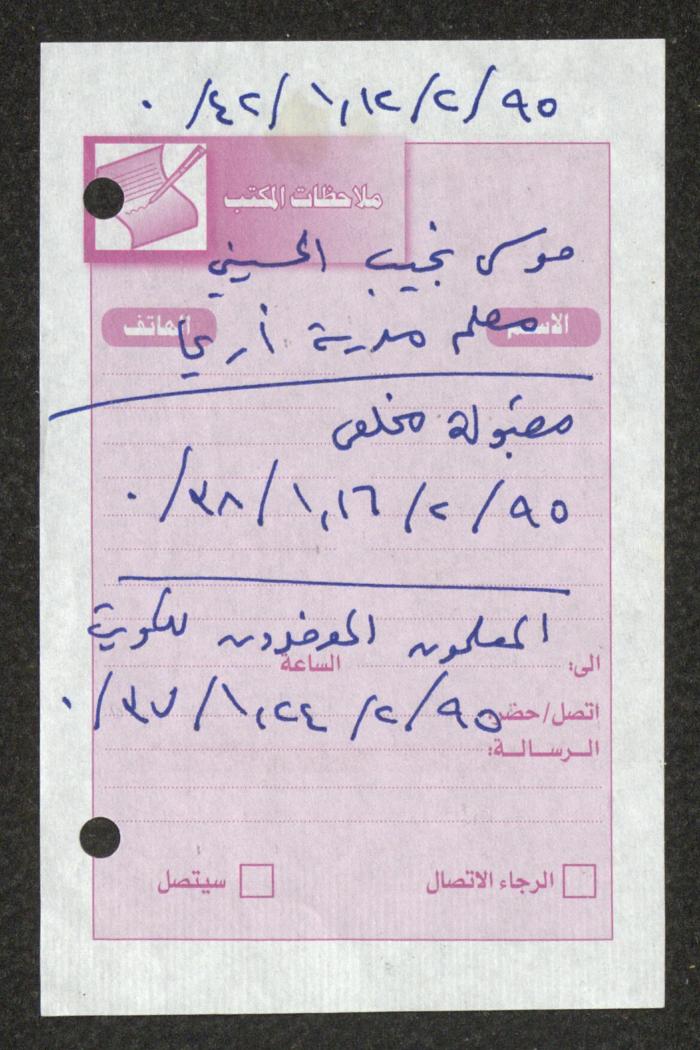 ٠/٤٢/١,١٢/٢/٩٥
ملاحظات المكتب
موسى نجيب الحسيني
الاسم الهاتف
معلم مدرسة أريحا
مقبولة مخلص
٠/٣٨/١,١٦/٢/٩٥
المعلمون الموفدون للكويت
الى: الساعة
٠/٣٧/١,٢٤/٢/٩٥
اتصل/حضر
الرسالة:
الرجاء الاتصال سيتصل